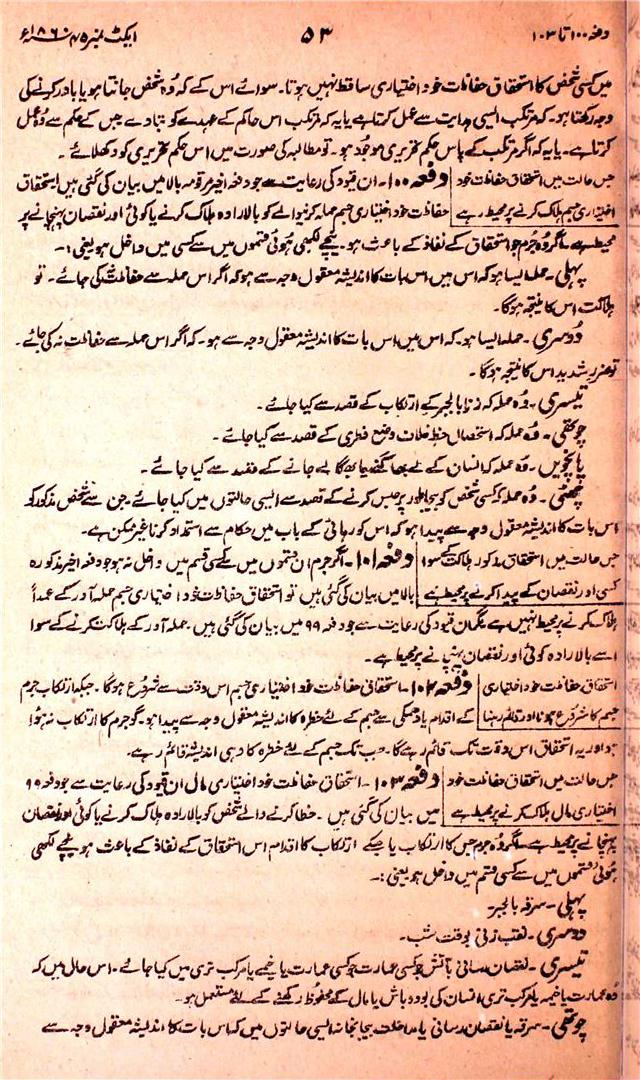 دفعہ ۱۰۰ تا ۱۰۳ ۵۳ ایکٹ نمبر ۴۵ ۱۸۶۰ء
میں کسی شخص کا استحقاق حفاظت خود اختیاری ساقط نہیں ہوتا۔ سوائے اس کے کہ وہ شخص جانتا ہو یا باور کرنے کی
وجہ رکھتا ہو۔ کہ مرتکب ایسی ہدایت سے عمل کرتا ہے یا یہ کہ مرتکب اس حاکم کے عہدے کو بتا دے جس کے حکم سے وہ عمل
کرتا ہے۔ یا یہ کہ اگر مرتکب کے پاس حکم تحریری موجود ہو۔ تو مطالبہ کی صورت میں اس حکم تحریری کو دکھلائے۔
جس حالت میں استحقاق حفاظت خود دفعہ ۱۰۰۔ ان قیود کی رعایت سے جو دفعہ اخیر مرقومہ بالا میں بیان کی گئی ہیں استحقاق
اختیاری جسم ہلاک کرنے پر محیط ہے حفاظت خود اختیاری جسم حملہ کرنیوالے کو بالارادہ ہلاک کرنے یا کوئی اور نقصان پہنچانے پر
محیط ہے۔ اگر وہ جرم جو استحقاق کے نفاذ کے باعث ہو۔ نیچے لکھی ہوئی قسموں میں سے کسی میں داخل ہو یعنی:۔
پہلی۔ حملہ ایسا ہو کہ اس میں اس بات کا اندیشہ معقول وجہ سے ہو کہ اگر اس حملہ سے حفاظت نہ کی جائے۔ تو
ہلاکت اس کا نتیجہ ہوگا۔
دوسری۔ حملہ ایسا ہو۔ کہ اس میں اس بات کا اندیشہ معقول وجہ سے ہو۔ کہ اگر اس حملہ سے حفاظت نہ کی جائے۔
تو ضرر شدید اس کا نتیجہ ہوگا۔
تیسری۔ وہ حملہ کہ زنا بالجبر کے ارتکاب کے قصد سے کیا جائے۔
چوتھی۔ وہ حملہ کہ استحصال حظ خلاف وضع فطری کے قصد سے کیا جائے۔
پانچویں۔ وہ حملہ کہ انسان کے لے بھاگنے یا بھگا لے جانے کے قصد سے کیا جائے۔
چھٹی۔ وہ حملہ کہ کسی شخص کو بیجا طور پر حبس کرنے کے قصد سے ایسی حالتوں میں کیا جائے۔ جن سے شخص مذکور کو
اس بات کا اندیشہ معقول وجہ سے پیدا ہو کہ اس کو رہائی کے باب میں حکام سے استمداد کرنا غیر ممکن ہے۔
جس حالت میں استحقاق مذکور ہلاکت کے سوا دفعہ ۱۰۱۔ اگر جرم ان قسموں میں سے کسی قسم میں داخل نہ ہو جو دفعہ اخیر مذکورہ
کسی اور نقصان کے پیدا کرنے پر محیط ہے بالا میں بیان کی گئی ہیں تو استحقاق حفاظت خود اختیاری جسم حملہ آور کے عمداً
ہلاک کرنے پر محیط نہیں ہے مگر ان قیود کی رعایت سے جو دفعہ ۹۹ میں بیان کی گئی ہیں۔ حملہ آور کے ہلاکت کرنے کے سوا
اسے بالارادہ کوئی اور نقصان پہنچانے پر محیط ہے۔
استحقاق حفاظت خود اختیاری دفعہ ۱۰۲۔ استحقاق حفاظت خود اختیاری جسم اس وقت سے شروع ہوگا۔ جبکہ ارتکاب جرم
جسم کا شروع ہونا اور قائم رہنا کے اقدام یا دھمکی سے جسم کے لئے خطرہ کا اندیشہ معقول وجہ سے پیدا ہو۔ گو جرم کا ارتکاب نہ ہوا
ہو اور یہ استحقاق اس وقت تک قائم رہے گا۔ جب تک جسم کے لئے خطرہ کا وہی اندیشہ قائم رہے۔
جس حالت میں استحقاق حفاظت خود دفعہ ۱۰۳۔ استحقاق حفاظت خود اختیاری مال ان قیود کی رعایت سے جو دفعہ ۹۹
اختیاری مال ہلاک کرنے پر محیط ہے میں بیان کی گئی ہیں۔ خطا کرنے والے شخص کو بالارادہ ہلاک کرنے یا کوئی اور نقصان
پہنچانے پر محیط ہے۔ اگر وہ جرم جس کا ارتکاب یا جسکے ارتکاب کا اقدام اس استحقاق کے نفاذ کے باعث ہو نیچے لکھی
ہوئی قسموں میں سے کسی قسم میں داخل ہو یعنی:۔
پہلی۔ سرقہ بالجبر۔
دوسری۔ نقب زنی بوقت شب۔
تیسری۔ نقصان رسانی بآتش جو کسی عمارت جو کسی عمارت یا خیمے یا مرکب تری میں کیا جائے۔ اس حال میں کہ
وہ عمارت یا خیمہ یا مرکب تری انسان کی بود و باش یا مال کے محفوظ رکھنے کے لئے مستعمل ہو۔
چوتھی۔ سرقہ یا نقصان رسانی یا مداخلت بیجا بخانہ ایسی حالتوں میں کہ اس بات کا اندیشہ معقول وجہ سے